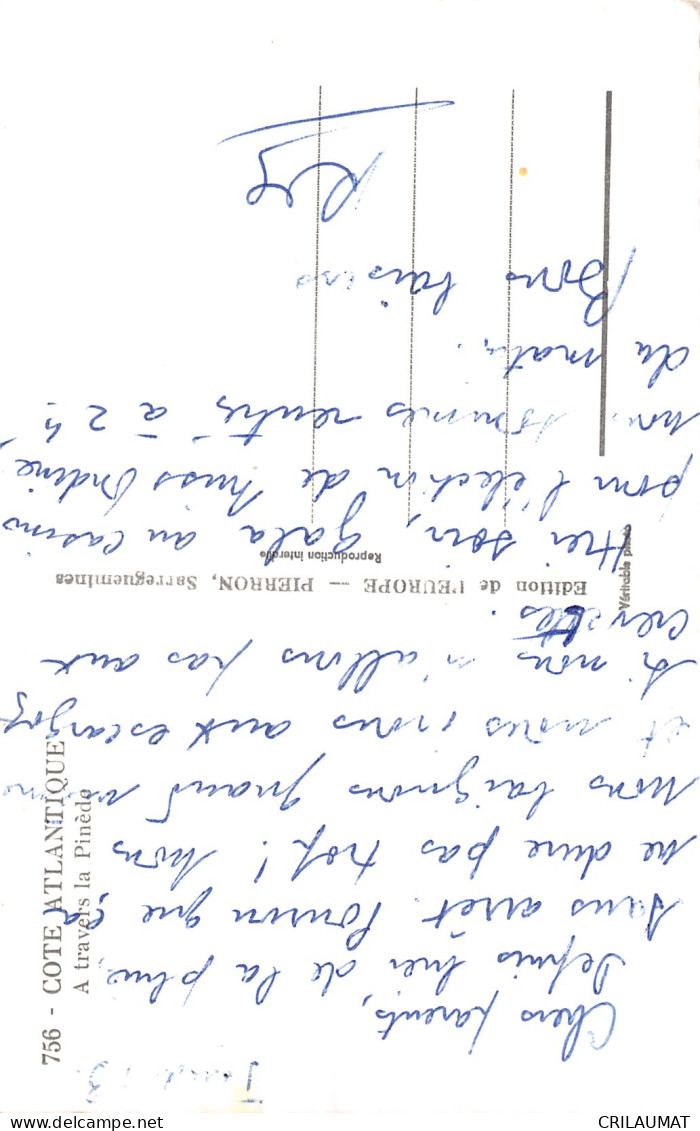 756 - COTE ATLANTIQUE
A travers la Pinède
Edition de l'EUROPE — PIERRON, Sarreguemines
Reproduction interdite
Véritable photo
Jeudi 13.
Chers parents,
Depuis hier de la pluie
sans arrêt. Pourvu que ça
ne dure pas trop ! Nous
nous baignons quand même
et nous irons aux escargots
si nous n'allons pas aux
crevettes.
Hier soir, gala au casino
pour l'élection de Miss Ondine,
nous sommes rentrés à 2 h.
du matin.
Bons baisers
CRILAUMAT